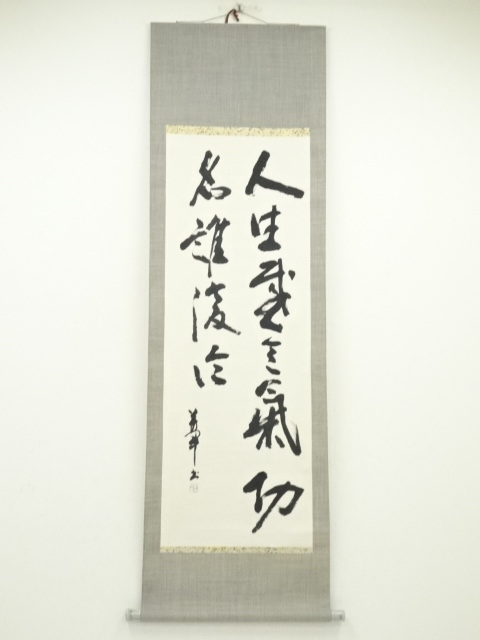 人生感意氣功
名誰復論
書